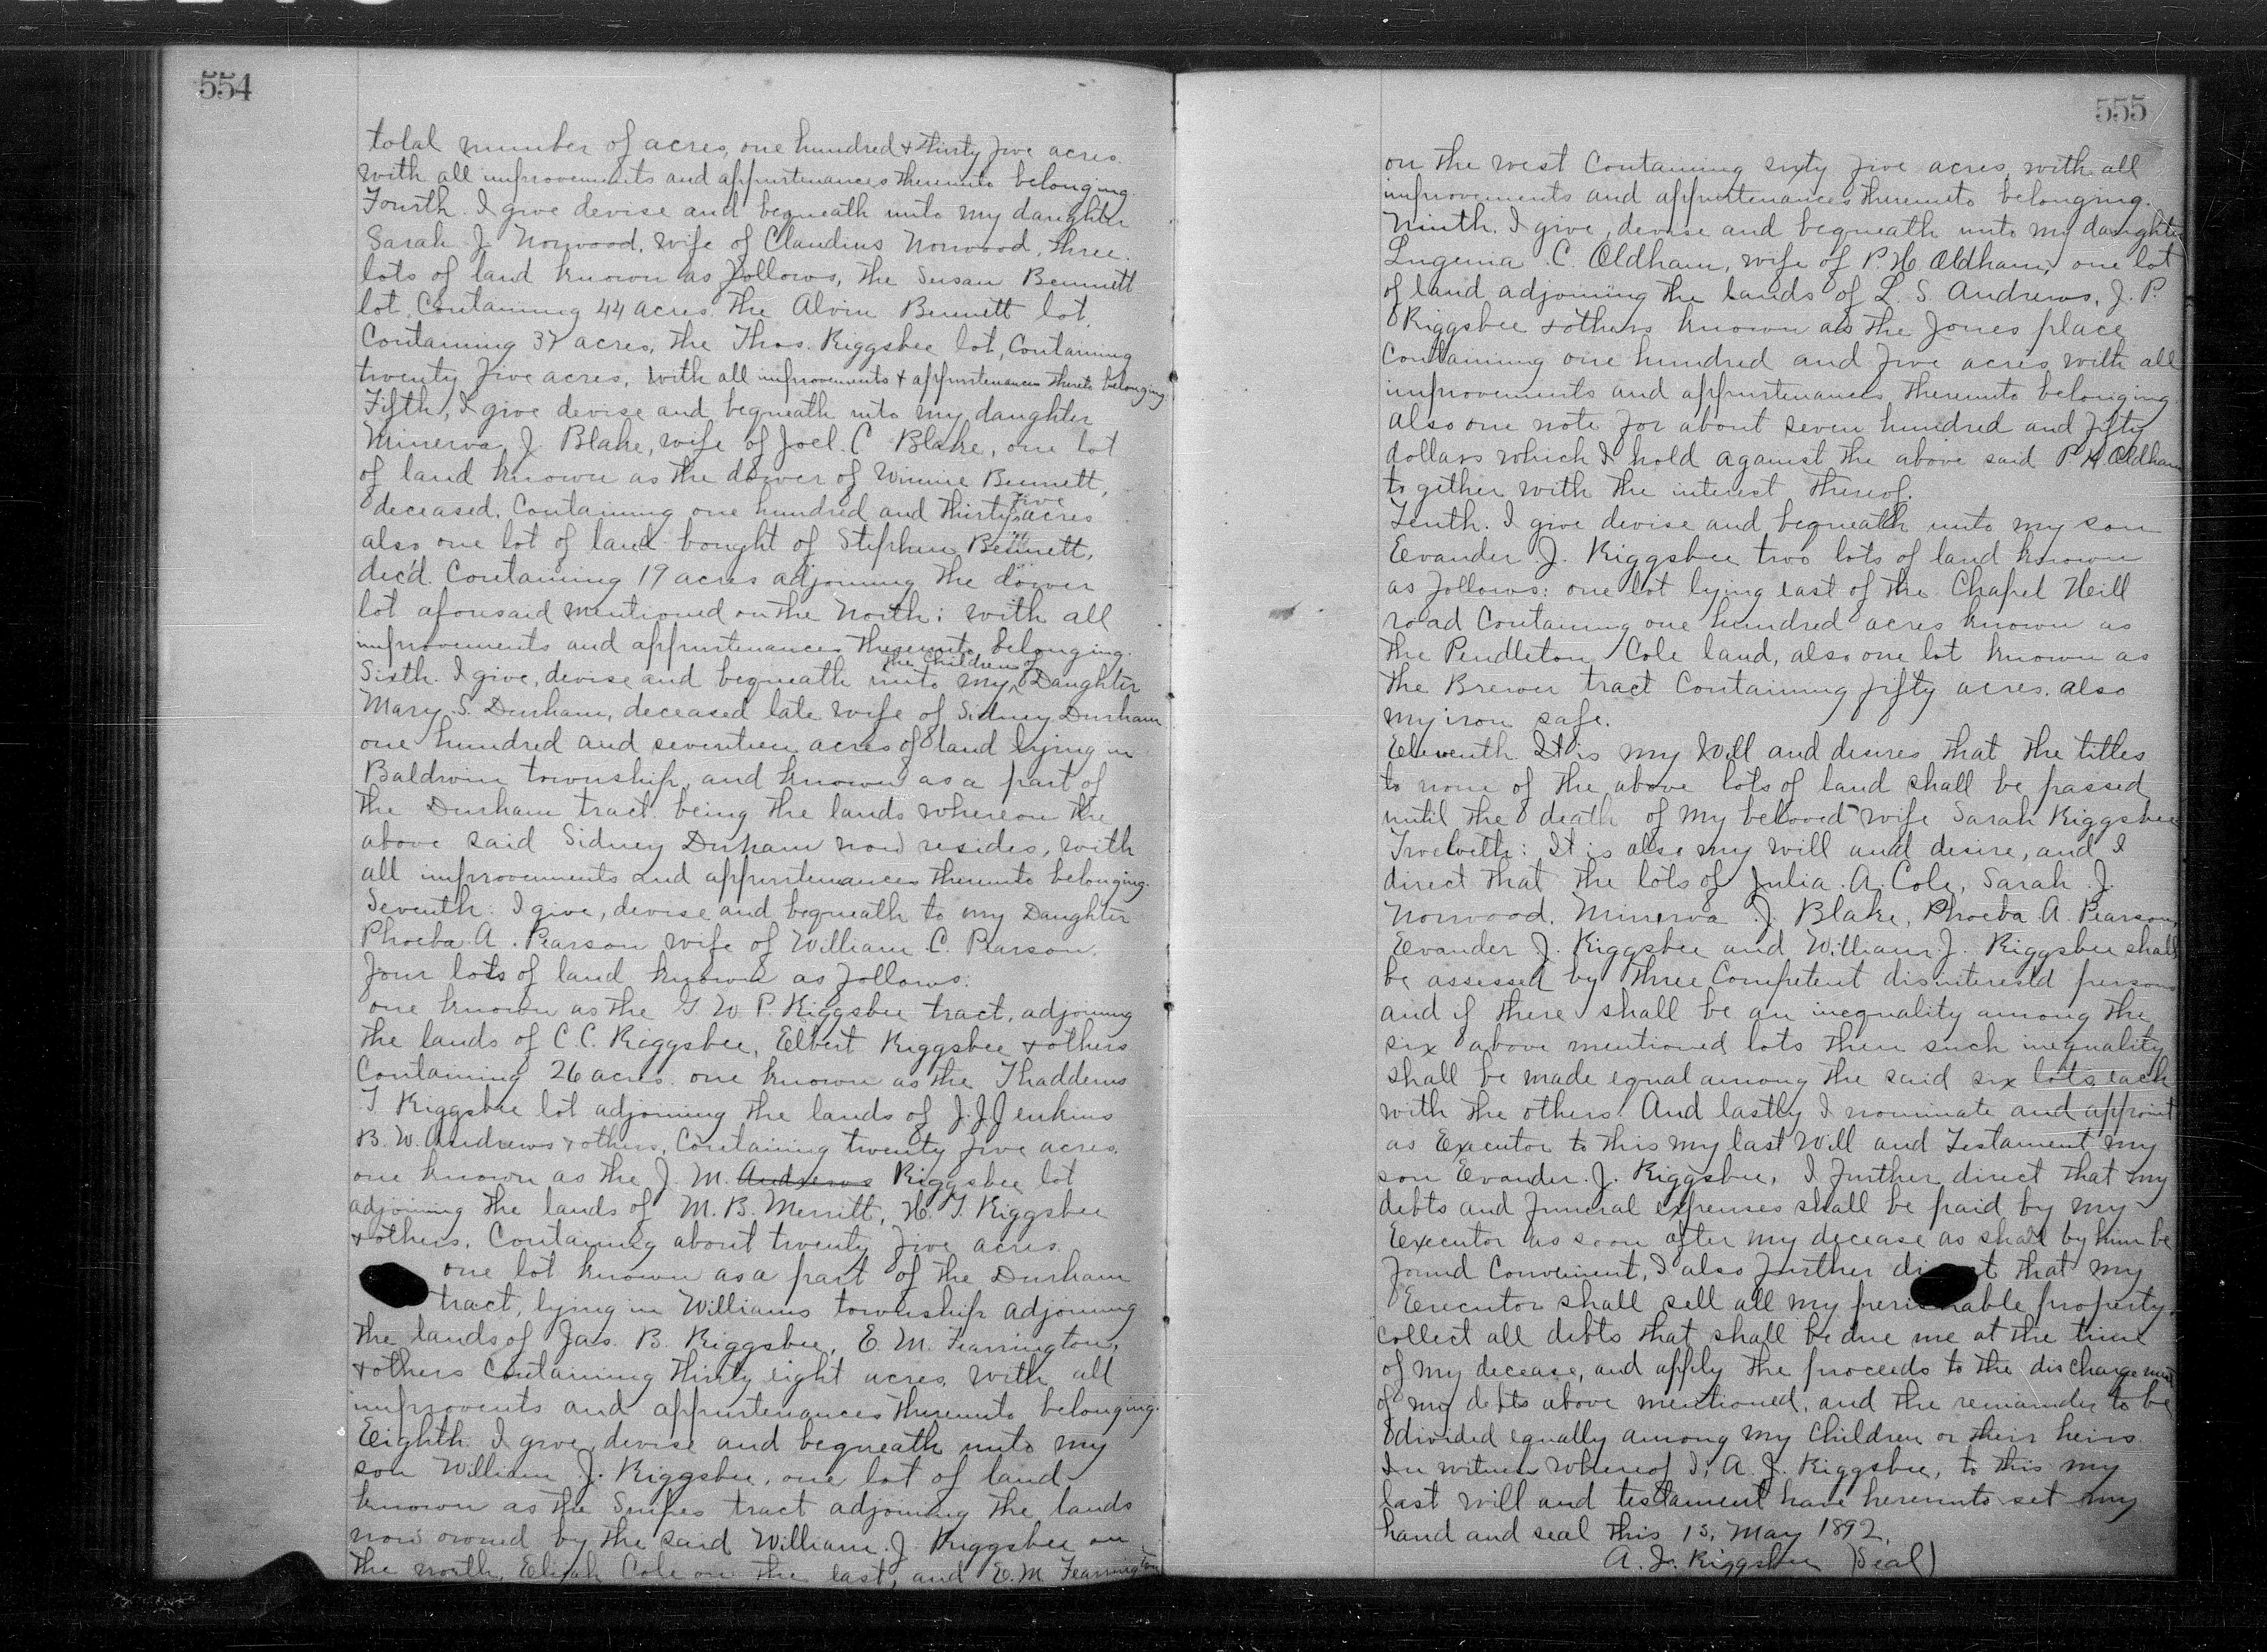 554
total number of acres, one hundred & thirty five acres.
With all improvements and appurtenances thereunto belonging.
Fourth. I give devise and bequeath unto my daughter
Sarah J. Norwood, wife of Claudius Norwood, three
lots of land known as follows, the Susan Bennett
lot, Containing 44 acres. The Alvin Bennett lot,
Containing 37 acres, the Thos. Riggsbee lot, Containing
twenty five acres, with all improvements & appurtenances thereto belonging.
Fifth, I give devise and bequeath unto my daughter
Minerva J. Blake, wife of Joel. C Blake, one lot
of land known as the dower of Winnie Bennett,
deceased. Containing one hundred and thirty five acres
also one lot of land bought of Stephen Bennett,
dec'd. Containing 19 acres adjoining the dower
lot aforesaid mentioned on the North: with all
improvements and appurtenances thereunto belonging.
Sixth. I give, devise and bequeath unto my the Children of Daughter
Mary S. Durham, deceased late wife of Sidney Durham
one hundred and seventeen acres of land lying in
Baldwin township, and known as a part of
the Durham tract being the lands whereon the
above said Sidney Durham now resides, with
all improvements and appurtenances thereunto belonging.
Seventh: I give, devise and bequeath to my Daughter
Phoeba. A. Pearson wife of William. C. Pearson.
four lots of land known as follows:
one known as the G. W. P. Riggsbee tract, adjoining
the lands of C. C. Riggsbee, Elbert Riggsbee & others
Containing 26 acres. one known as the Thaddeus
T Riggsbee lot adjoining the lands of J. J. Jenkins
B. W. Andrews & others, Containing twenty five acres.
one known as the J. M. Andrews Riggsbee lot
adjoining the lands of M. B. Merritt, H. T. Riggsbee
& others. Containing about twenty five acres.
one lot known as a part of the Durham
tract, lying in Williams township adjoining
the lands of Jas. B. Riggsbee, E. M. Fearrington,
& others Containing thirty eight acres, with all
improvents and appurtenances thereunto belonging.
Eighth. I give, devise and bequeath unto my
son William J. Riggsbee, one lot of land
known as the Snipes tract adjoining the lands
now owned by the said William. J. Riggsbee on
the north, Elijah Cole on the east, and E. M Fearrington
555
on the west Containing sixty five acres, with all
improvements and appurtenances thereunto belonging.
Ninth. I give, devise and bequeath unto my daughter
Lugenia C. Oldham, wife of P. H Oldham, one lot
of land adjoining the lands of L. S. Andrews, J. P.
Riggsbee & others known as the Jones place
Containing one hundred and five acres with all
improvements and appurtenances thereunto belonging
also one note for about seven hundred and fifty
dollars which I hold against the above said P H. Oldham
to gether with the interest thereof.
Tenth. I give devise and bequeath unto my son
Evander. J. Riggsbee two lots of land known
as follows: one lot lying east of the Chapel Hill
road Containing one hundred acres known as
the Pendleton Cole land, also one lot known as
the Brewer tract Containing fifty acres. also
my iron safe.
Eleventh It is my Will and desires that the titles
to none of the above lots of land shall be passed
until the death of my beloved wife Sarah Riggsbee
Twelveth: It is also my will and desire, and I
direct that the lots of Julia. A. Cole, Sarah. J.
Norwood, Minerva J. Blake, Phoeba A. Pearson,
Evander J. Riggsbee and William J. Riggsbee shall
be assessed by three Competent disinterestd persons
and if there shall be an inequality among the
six above mentioned lots then such inequality
shall be made equal among the said six lots each
with the others. And lastly I nominate and appoint
as Executor to this my last Will and Testament my
son Evander. J. Riggsbee, I further direct that my
debts and funeral expenses shall be paid by my
Executor as soon after my decease as shall by him be
found Convenient, I also further direct that my
Executor shall sell all my perishable property.
collect all debts that shall be due me at the time
of my decease, and apply the proceeds to the dischargement
of my debts above mentioned, and the remainder to be
divided equally among my Children or their heirs.
In witness whereof I, A. J. Riggsbee, to this my
last will and testament have hereunto set my
hand and seal this 13, May 1892.
A. J. Riggsbee (Seal)